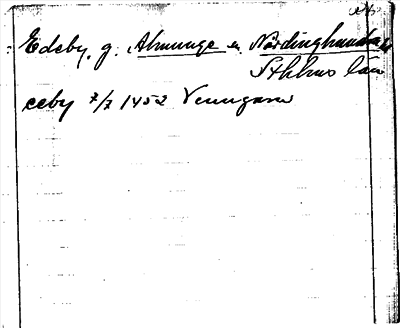 Edeby, g. Almunge sn, Närdinghundra
Sthlms län
eeby 7/7 1452 Venngarn